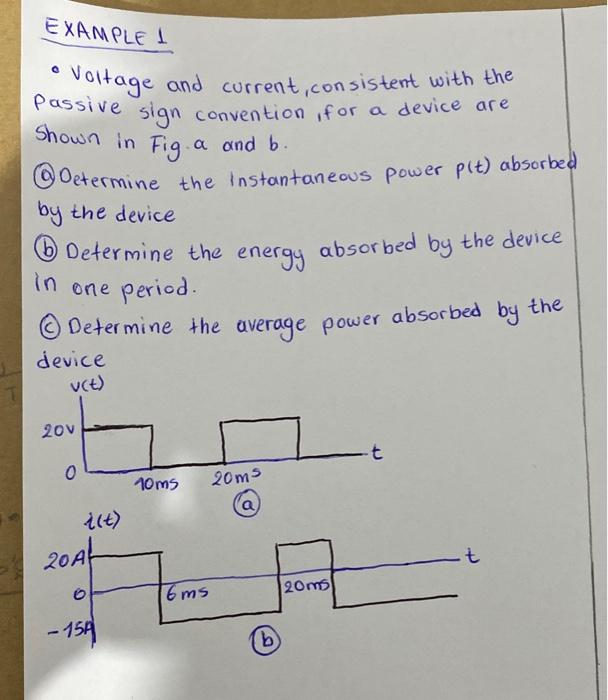 EXAMPLE 1
• Voltage and current, consistent with the
Passive sign convention, for a device are
Shown in Fig.a and b.
ⓐ Determine the instantaneous power p(t) absorbed
by the device
ⓑ Determine the energy absorbed by the device
in one period.
ⓒ Determine the average power absorbed by the
device
v(t)
20V
0
10ms
20ms
t
ⓐ
i(t)
20A
0
-15A
6ms
20ms
t
ⓑ